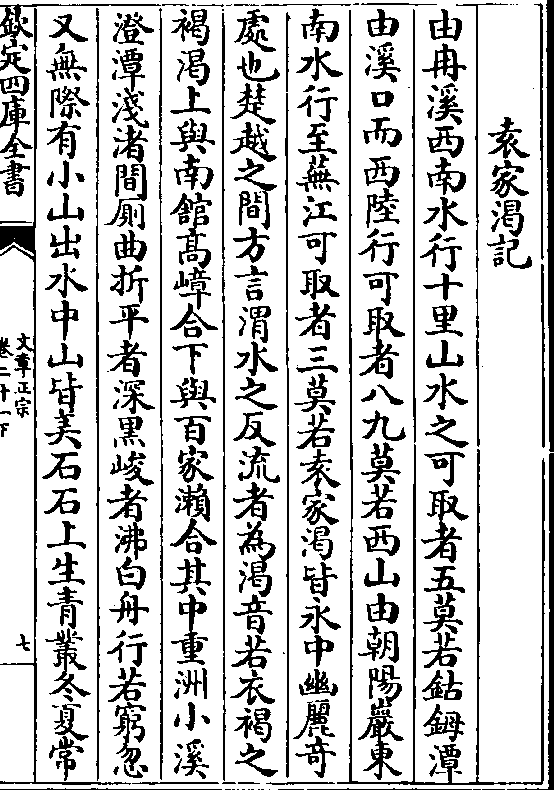 袁家渴記
由冉溪西南水行十里山水之可取者五莫若鈷鉧潭
由溪口而西陸行可取者八九莫若西山由朝陽巖東
南水行至蕪江可取者三莫若袁家渴皆永中幽麗奇
處也楚越之間方言渭水之反流者為渴音若衣褐之
褐渴上與南館高嶂合下與百家瀨合其中重洲小溪
澄潭淺渚間厠曲折平者深黒峻者沸白舟行若窮忽
又無際有小山出水中山皆美石石上生青叢冬夏常
欽定四庫全書
文章正宗
卷二十一下
七